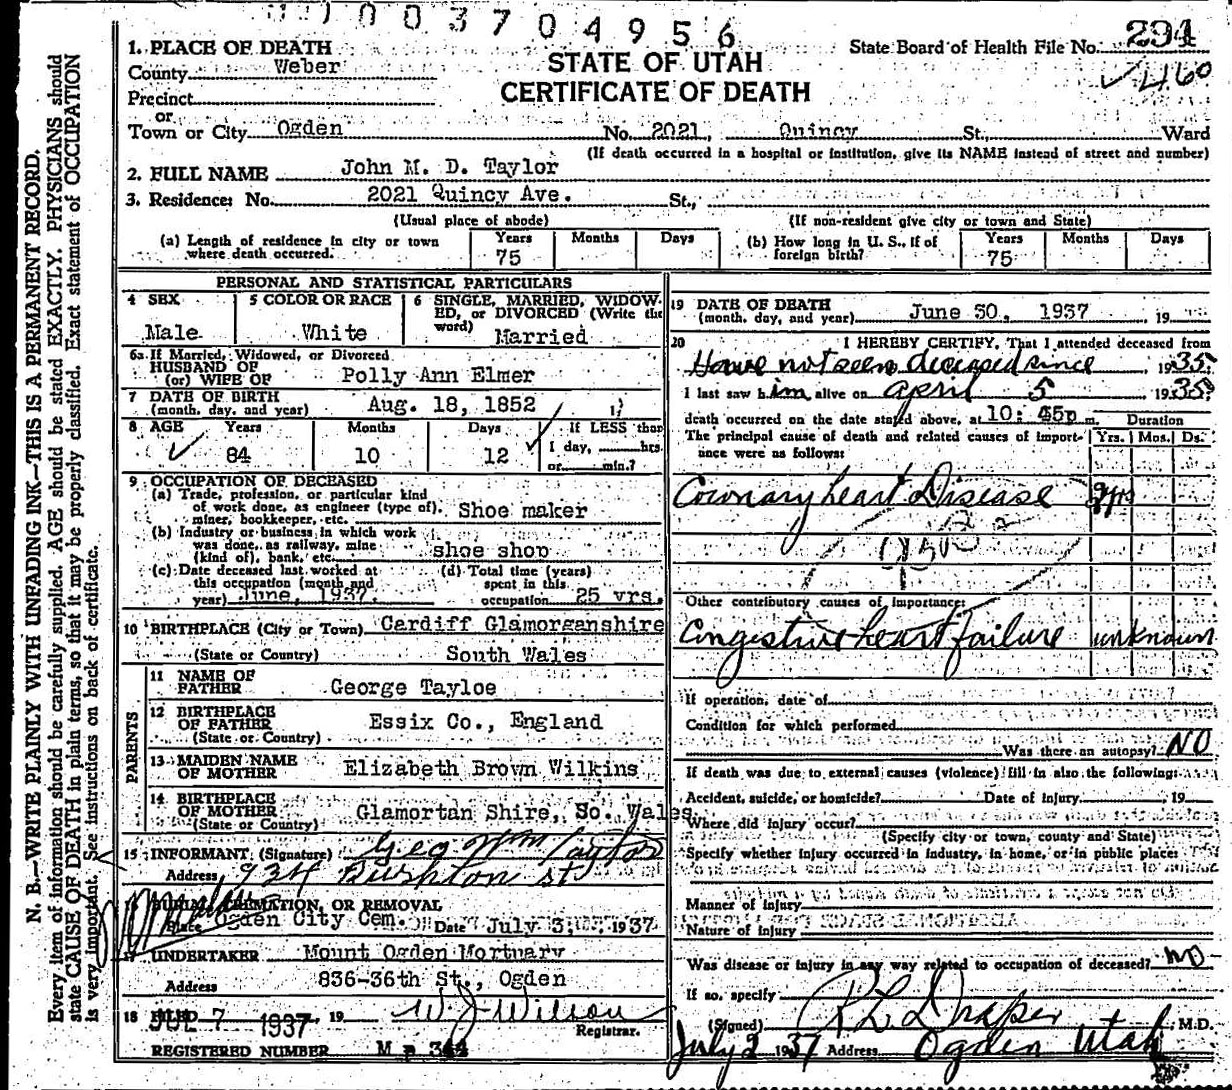 0 0 3 7 0 4 9 5 6
1. PLACE OF DEATH
County Weber
Precinct
or
Town or City Ogden No. 2021, Quincy St., Ward
STATE OF UTAH
CERTIFICATE OF DEATH
State Board of Health File No. 294
✓ 460
(If death occurred in a hospital or institution, give its NAME instead of street and number)
2. FULL NAME John M. D. Taylor
3. Residence: No. 2021 Quincy Ave. St.,
(Usual place of abode) (If non-resident give city or town and State)
(a) Length of residence in city or town where death occurred. Years 75 Months Days
(b) How long in U. S., if of foreign birth? Years 75 Months Days
PERSONAL AND STATISTICAL PARTICULARS
4 SEX Male
5 COLOR OR RACE White
6 SINGLE, MARRIED, WIDOWED, or DIVORCED (Write the word) Married
6a If Married, Widowed, or Divorced
HUSBAND OF
(or) WIFE OF Polly Ann Elmer
7 DATE OF BIRTH
(month, day, and year) Aug. 18, 1852
8 AGE Years Months Days If LESS than
✓ 84 10 12 ✓ 1 day, hrs.
or min.?
9 OCCUPATION OF DECEASED
(a) Trade, profession, or particular kind
of work done, as engineer (type of),
miner, bookkeeper, etc. Shoe maker
(b) Industry or business in which work
was done, as railway, mine
(kind of), bank, etc. shoe shop
(c) Date deceased last worked at
this occupation (month and
year) June, 1937.
(d) Total time (years)
spent in this
occupation 25 yrs.
10 BIRTHPLACE (City or Town) Cardiff Glamorganshire
(State or Country) South Wales
PARENTS
11 NAME OF
FATHER George Tayloe
12 BIRTHPLACE
OF FATHER Essix Co., England
(State or Country)
13 MAIDEN NAME
OF MOTHER Elizabeth Brown Wilkins
14 BIRTHPLACE
OF MOTHER Glamortan Shire, So. Wales
(State or Country)
15 INFORMANT (Signature) Geo Wm Taylor
Address 934 Rushton st
BURIAL, CREMATION, OR REMOVAL
Place Ogden City Cem. Date July 3, 1937
UNDERTAKER Mount Ogden Mortuary
Address 836-36th St., Ogden
18 FILED JUL 7 1937, 19 W. J. Wilson
Registrar.
REGISTERED NUMBER M p 344
19 DATE OF DEATH
(month, day, and year) June 30, 1937 19
20 I HEREBY CERTIFY, That I attended deceased from
Have not seen deceased since 1935.
I last saw him alive on April 5 1935.
death occurred on the date stated above, at 10: 45p m. Duration
The principal cause of death and related causes of importance were as follows: Yrs. Mos. Ds.
Coronary heart Disease 2yrs
Other contributory causes of importance:
Congestive heart failure unknown
If operation, date of
Condition for which performed
Was there an autopsy? NO
If death was due to external causes (violence) fill in also the following:
Accident, suicide, or homicide? Date of injury , 19
Where did injury occur?
(Specify city or town, county and State)
Specify whether injury occurred in industry, in home, or in public place:
Manner of injury
Nature of injury
Was disease or injury in any way related to occupation of deceased? NO
If so, specify
(Signed) R L Draper, M.D.
July 2 1937 Address Ogden Utah
N. B.—WRITE PLAINLY WITH UNFADING INK—THIS IS A PERMANENT RECORD.
Every item of information should be carefully supplied. AGE should be stated EXACTLY. PHYSICIANS should
state CAUSE OF DEATH in plain terms, so that it may be properly classified. Exact statement of OCCUPATION
is very important. See instructions on back of certificate.